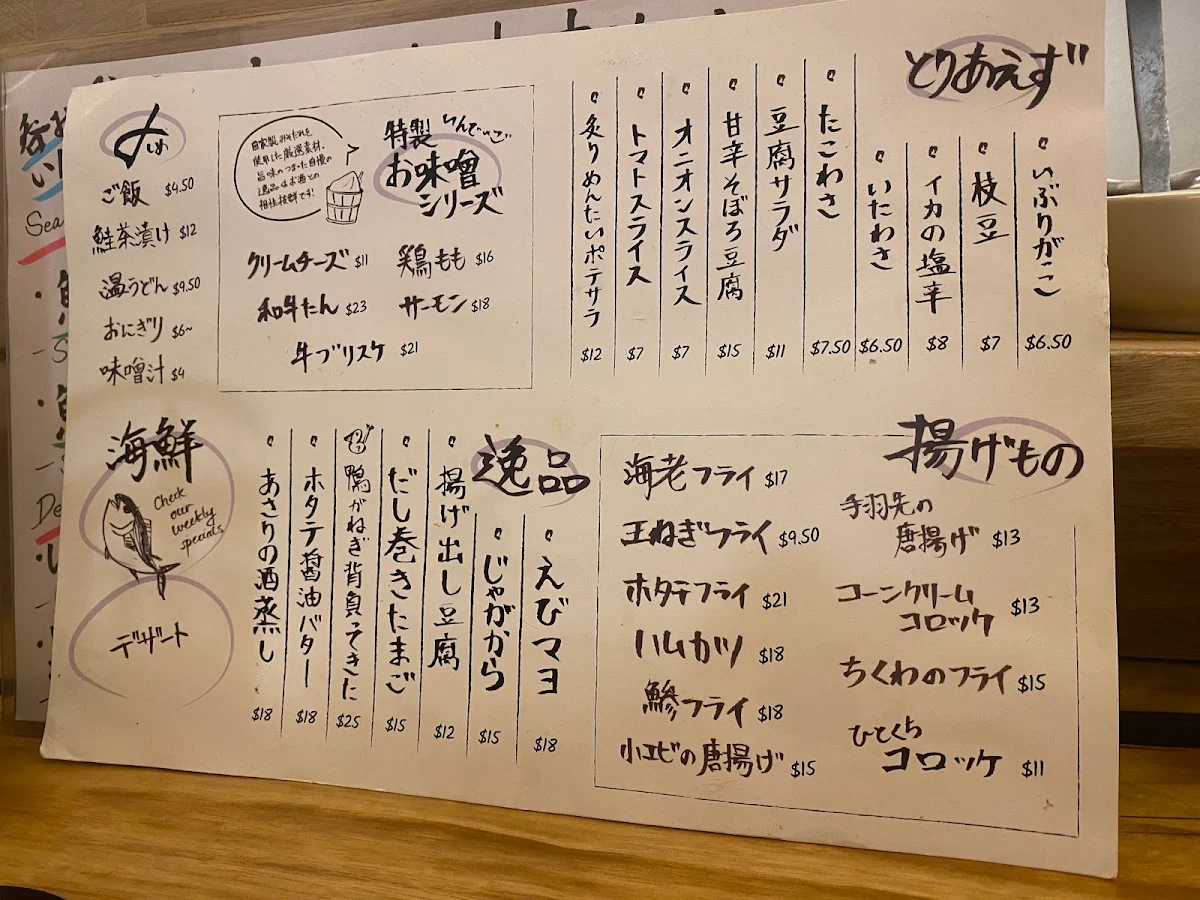 とりあえず
いぶりがっこ
$6.50
枝豆
$7
イカの塩辛
$8
いたわさ
$6.50
たこわさ
$7.50
豆腐サラダ
$11
甘辛そぼろ豆腐
$15
オニオンスライス
$7
トマトスライス
$7
炙りめんたいポテサラ
$12
特製
お味噌
シリーズ
自家製みそだれを
使用した厳選素材。
旨味のつまった自慢の
逸品はお酒との
相性抜群です!
クリームチーズ $11
鶏もも $16
和牛たん $23
サーモン $18
牛ブリスケ $21
〆
ご飯 $4.50
鮭茶漬け $12
温うどん $9.50
おにぎり $6~
味噌汁 $4
揚げもの
手羽先の
唐揚げ $13
コーンクリーム
コロッケ $13
ちくわのフライ $15
ひとくち
コロッケ $11
海老フライ $17
玉ねぎフライ $9.50
ホタテフライ $21
ハムカツ $18
鯵フライ $18
小エビの唐揚げ $15
逸品
えびマヨ
$18
じゃがから
$15
揚げ出し豆腐
$12
だし巻きたまご
$15
鴨がねぎ背負ってきた
$25
ホタテ醤油バター
$18
あさりの酒蒸し
$18
海鮮
Check
our
weekly
specials
デザート
Sea
De